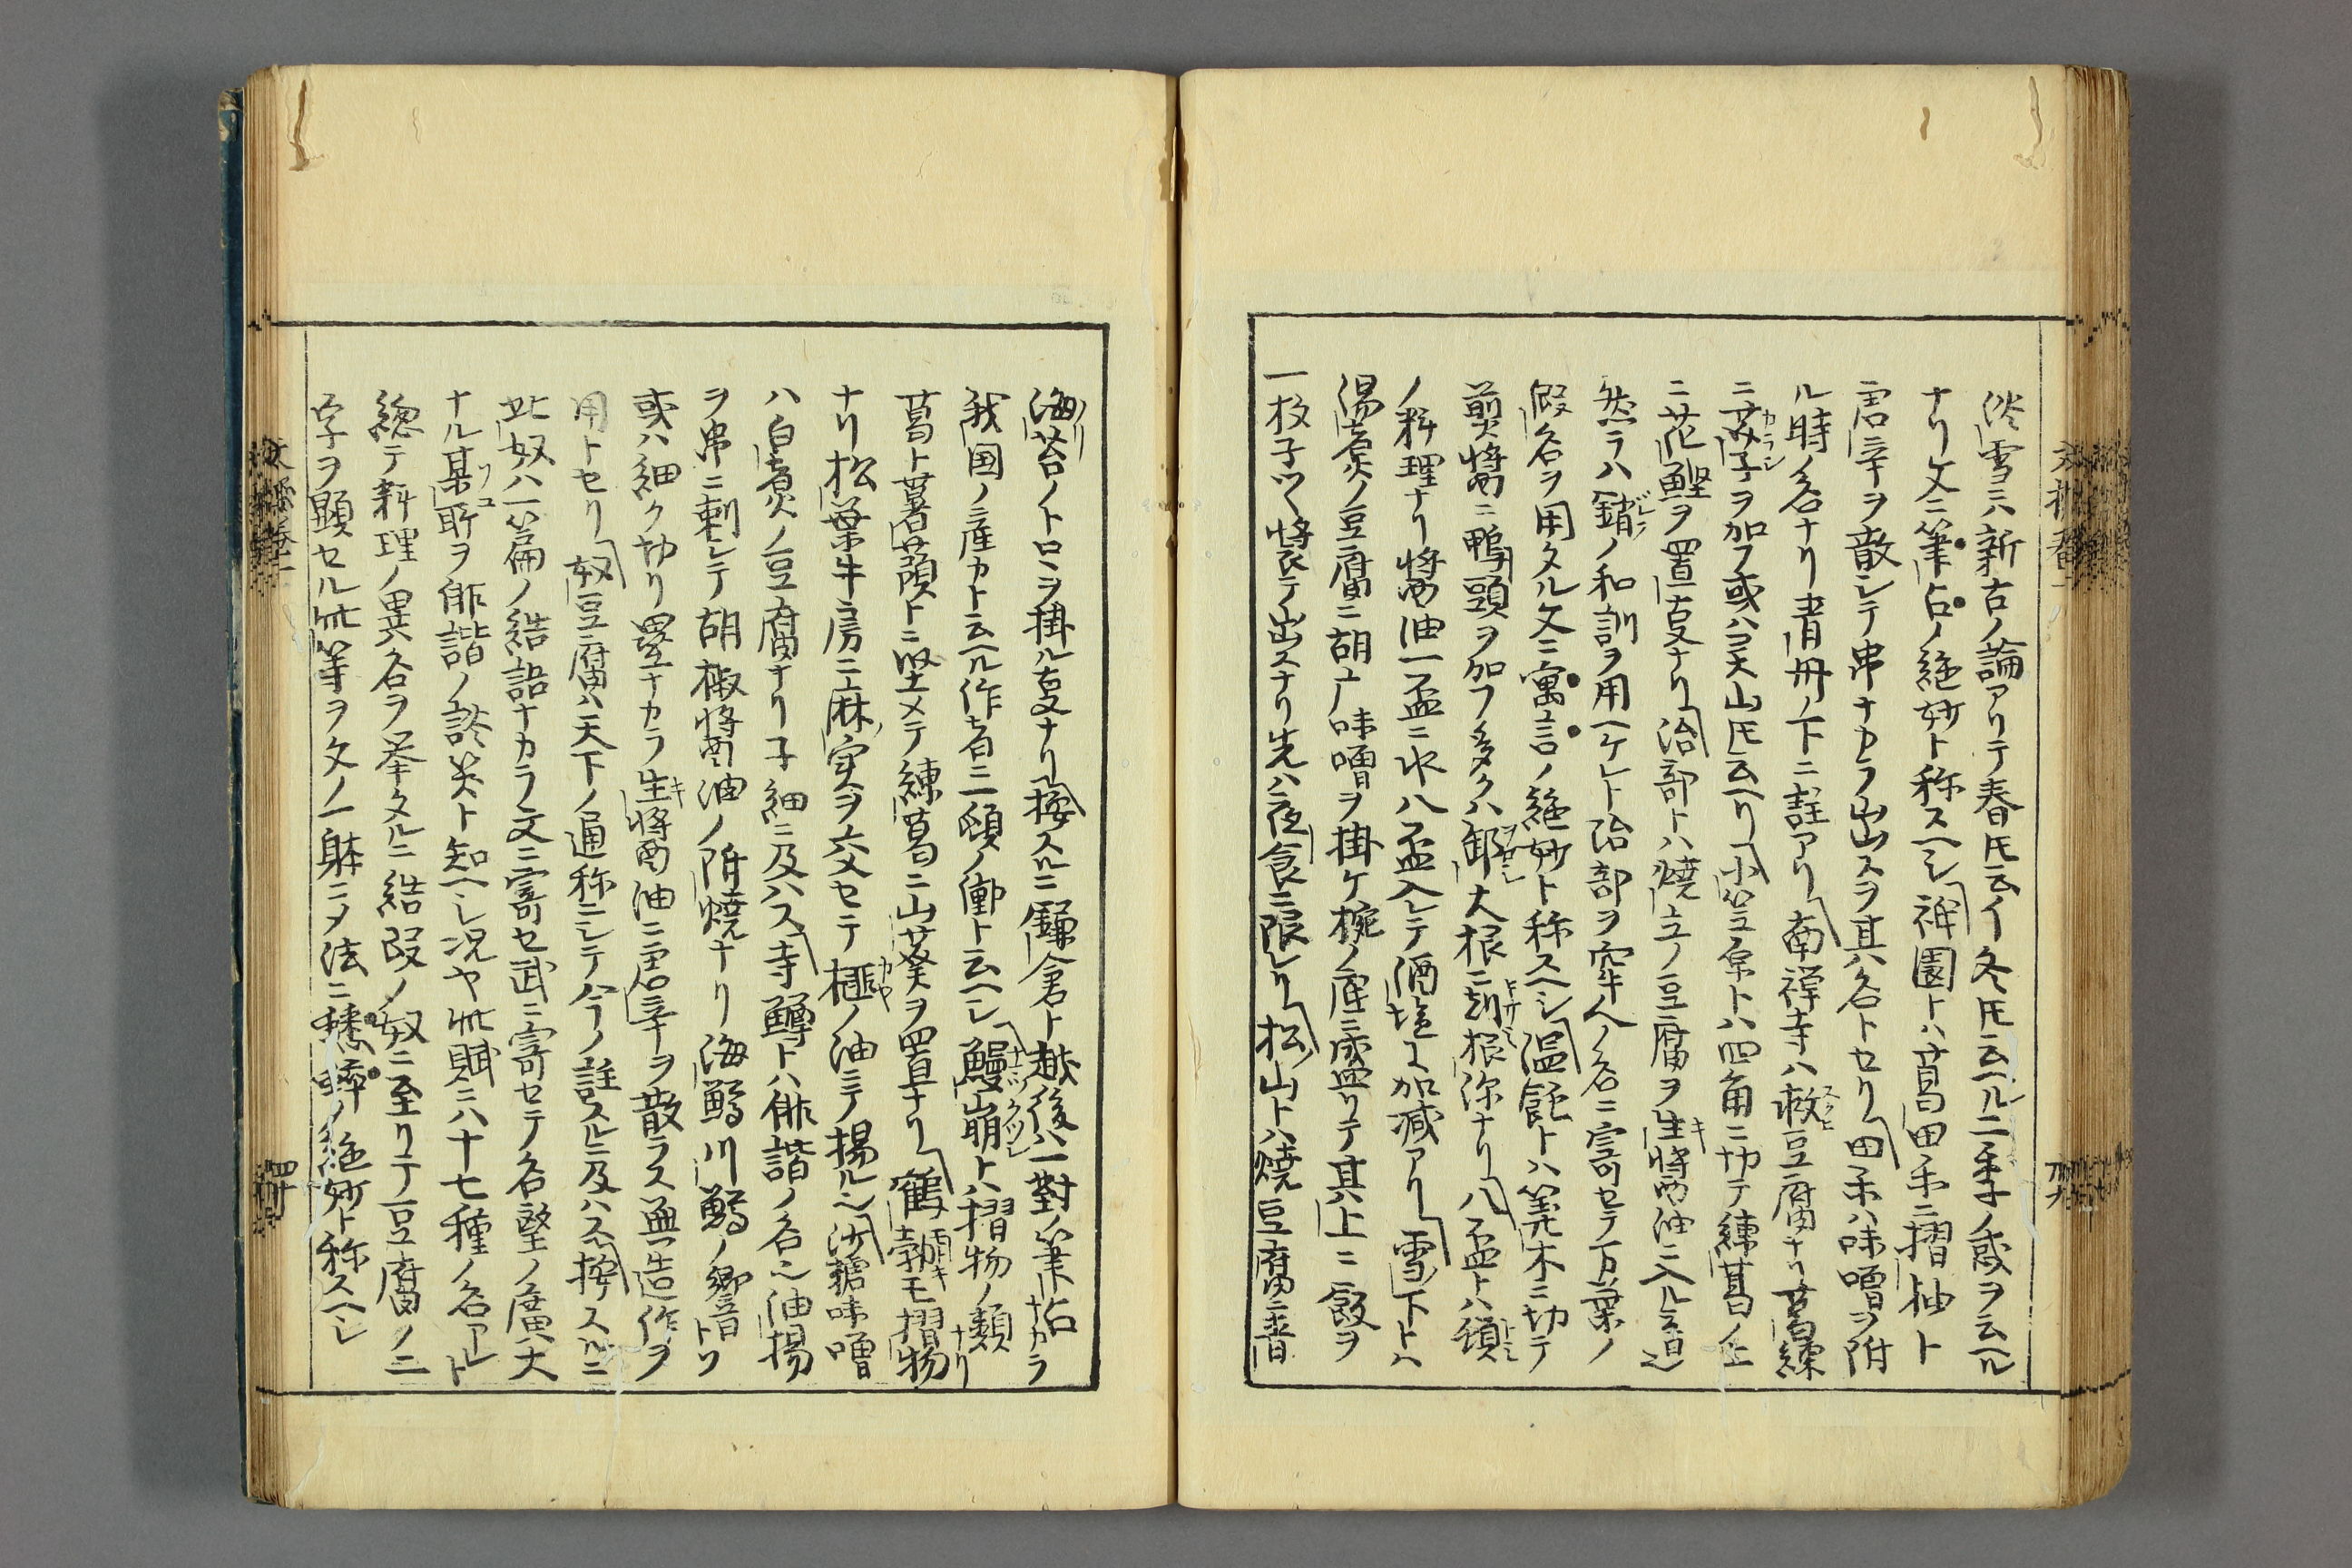 淡雪ニハ新古ノ論アリテ春氏云イ冬氏云ヘル二季ノ感ヲ云ヘル
ナリ文ニ筆占ノ絶妙ト称スヘシ祇園トハ葛田禾ニ摺柚ト
唐辛ヲ散シテ串ナカラ出スヲ其名トセリ田禾ハ味噌ヲ附
ル時ノ名ナリ青串ノ下ニ註アリ南禅寺ハ救豆腐ナリ葛練
ニ芥子ヲ加フ或ハ天山氏云ヘリ小笠原トハ四角ニ切テ練葛ノ上
ニ花鰹ヲ置事ナリ治部トハ焼立ノ豆腐ヲ生醤油ニ入ル音也
然ラハ ノ和訓ヲ用ヘケレト治部ヲ牢人ノ名ニ寄セテ万葉ノ
假名ヲ用タル文ニ寓言ノ絶妙ト称スヘシ温飩トハ算木ニ切テ
煎醤ニ鴨頭ヲ加フ多クハ卸大根ニ胡椒ナリ八盃トハ
ノ料理ナリ醤油一盃ニ水八盃入レテ酒塩ニ加減アリ雪下トハ
湯煮ノ豆腐ニ胡 味噌ヲ掛ケ椀ノ底ニ盛リテ其上ニ飯ヲ
一杓子ツヽ装テ出スナリ先ハ夜食ニ限レリ松山トハ焼豆腐ニ青
海苔ノトロヲ掛ル事ナリ按スルニ鎌倉ト越後ハ一對ノ筆拈ナカラ
我国ノ産カト云ヘル作者ニ一頭ノ働ト云ヘシ鰻崩トハ摺物ノ類ナリ
葛ト薯蕷トニ堅メテ練葛ニ山葵ヲ置ナリ鶴 モ摺物
ナリ松葉牛房ニ麻ノ実ヲ交セテ榧ノ油ニテ揚ル也 味噌
ハ白煮ノ豆腐ナリ子細ニ及ハス寺鱒トハ俳諧ノ名也油揚
ヲ串ニ刺シテ胡椒醤油ノ附焼ナリ海鱒川鱒ノ響トソ
或ハ細ク切リ畳ナカラ生醤油ニ唐辛ヲ散ラス無造作ヲ
用トセリ奴豆腐ハ天下ノ通称ニシテ今ノ註スルニ及ハス按スルニ
此奴ハ一篇ノ結語ナカラ文ニ寄セ武ニ寄セテ名堅ノ廣大
ナル某所ヲ俳諧ノ談笑ト知ヘシ况ヤ此賦ニ八十七種ノ名アレト
總テ料理ノ異名ヲ挙タルニ結段ノ奴ニ至リテ豆腐ノ二
字ヲ顕セル此等ヲ文ノ一躰ニメ法ニ ノ絶妙ト称スヘシ